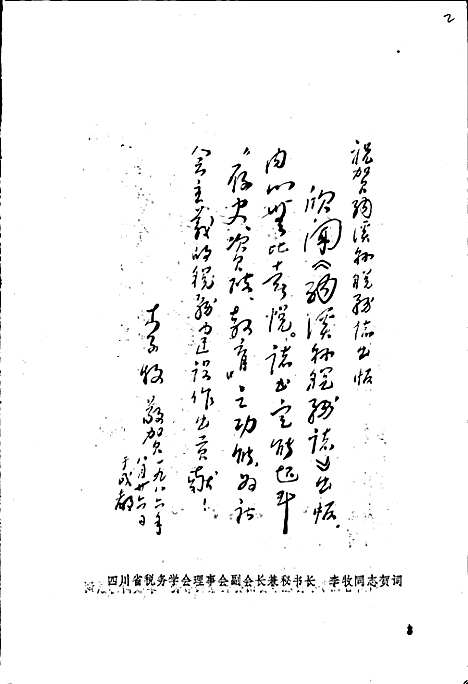 2
祝贺珙溪县税务志出版
欣闻《珙溪县税务志》出版，
内心无比喜悦。志书定能起到
“存史、资政、教育”之功能，为社
会主义的税务建设作出贡献！
李牧 敬贺
一九八六年
八月廿六日
于成都
四川省税务学会理事会副会长兼秘书长 李牧同志贺词